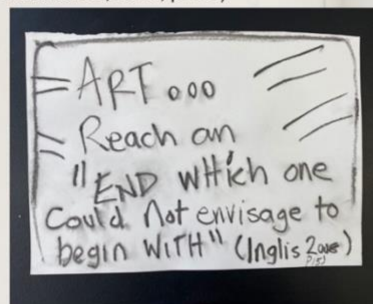 ART...
Reach an
"END WHich one
Could Not envisage to
begin WITH" (Inglis